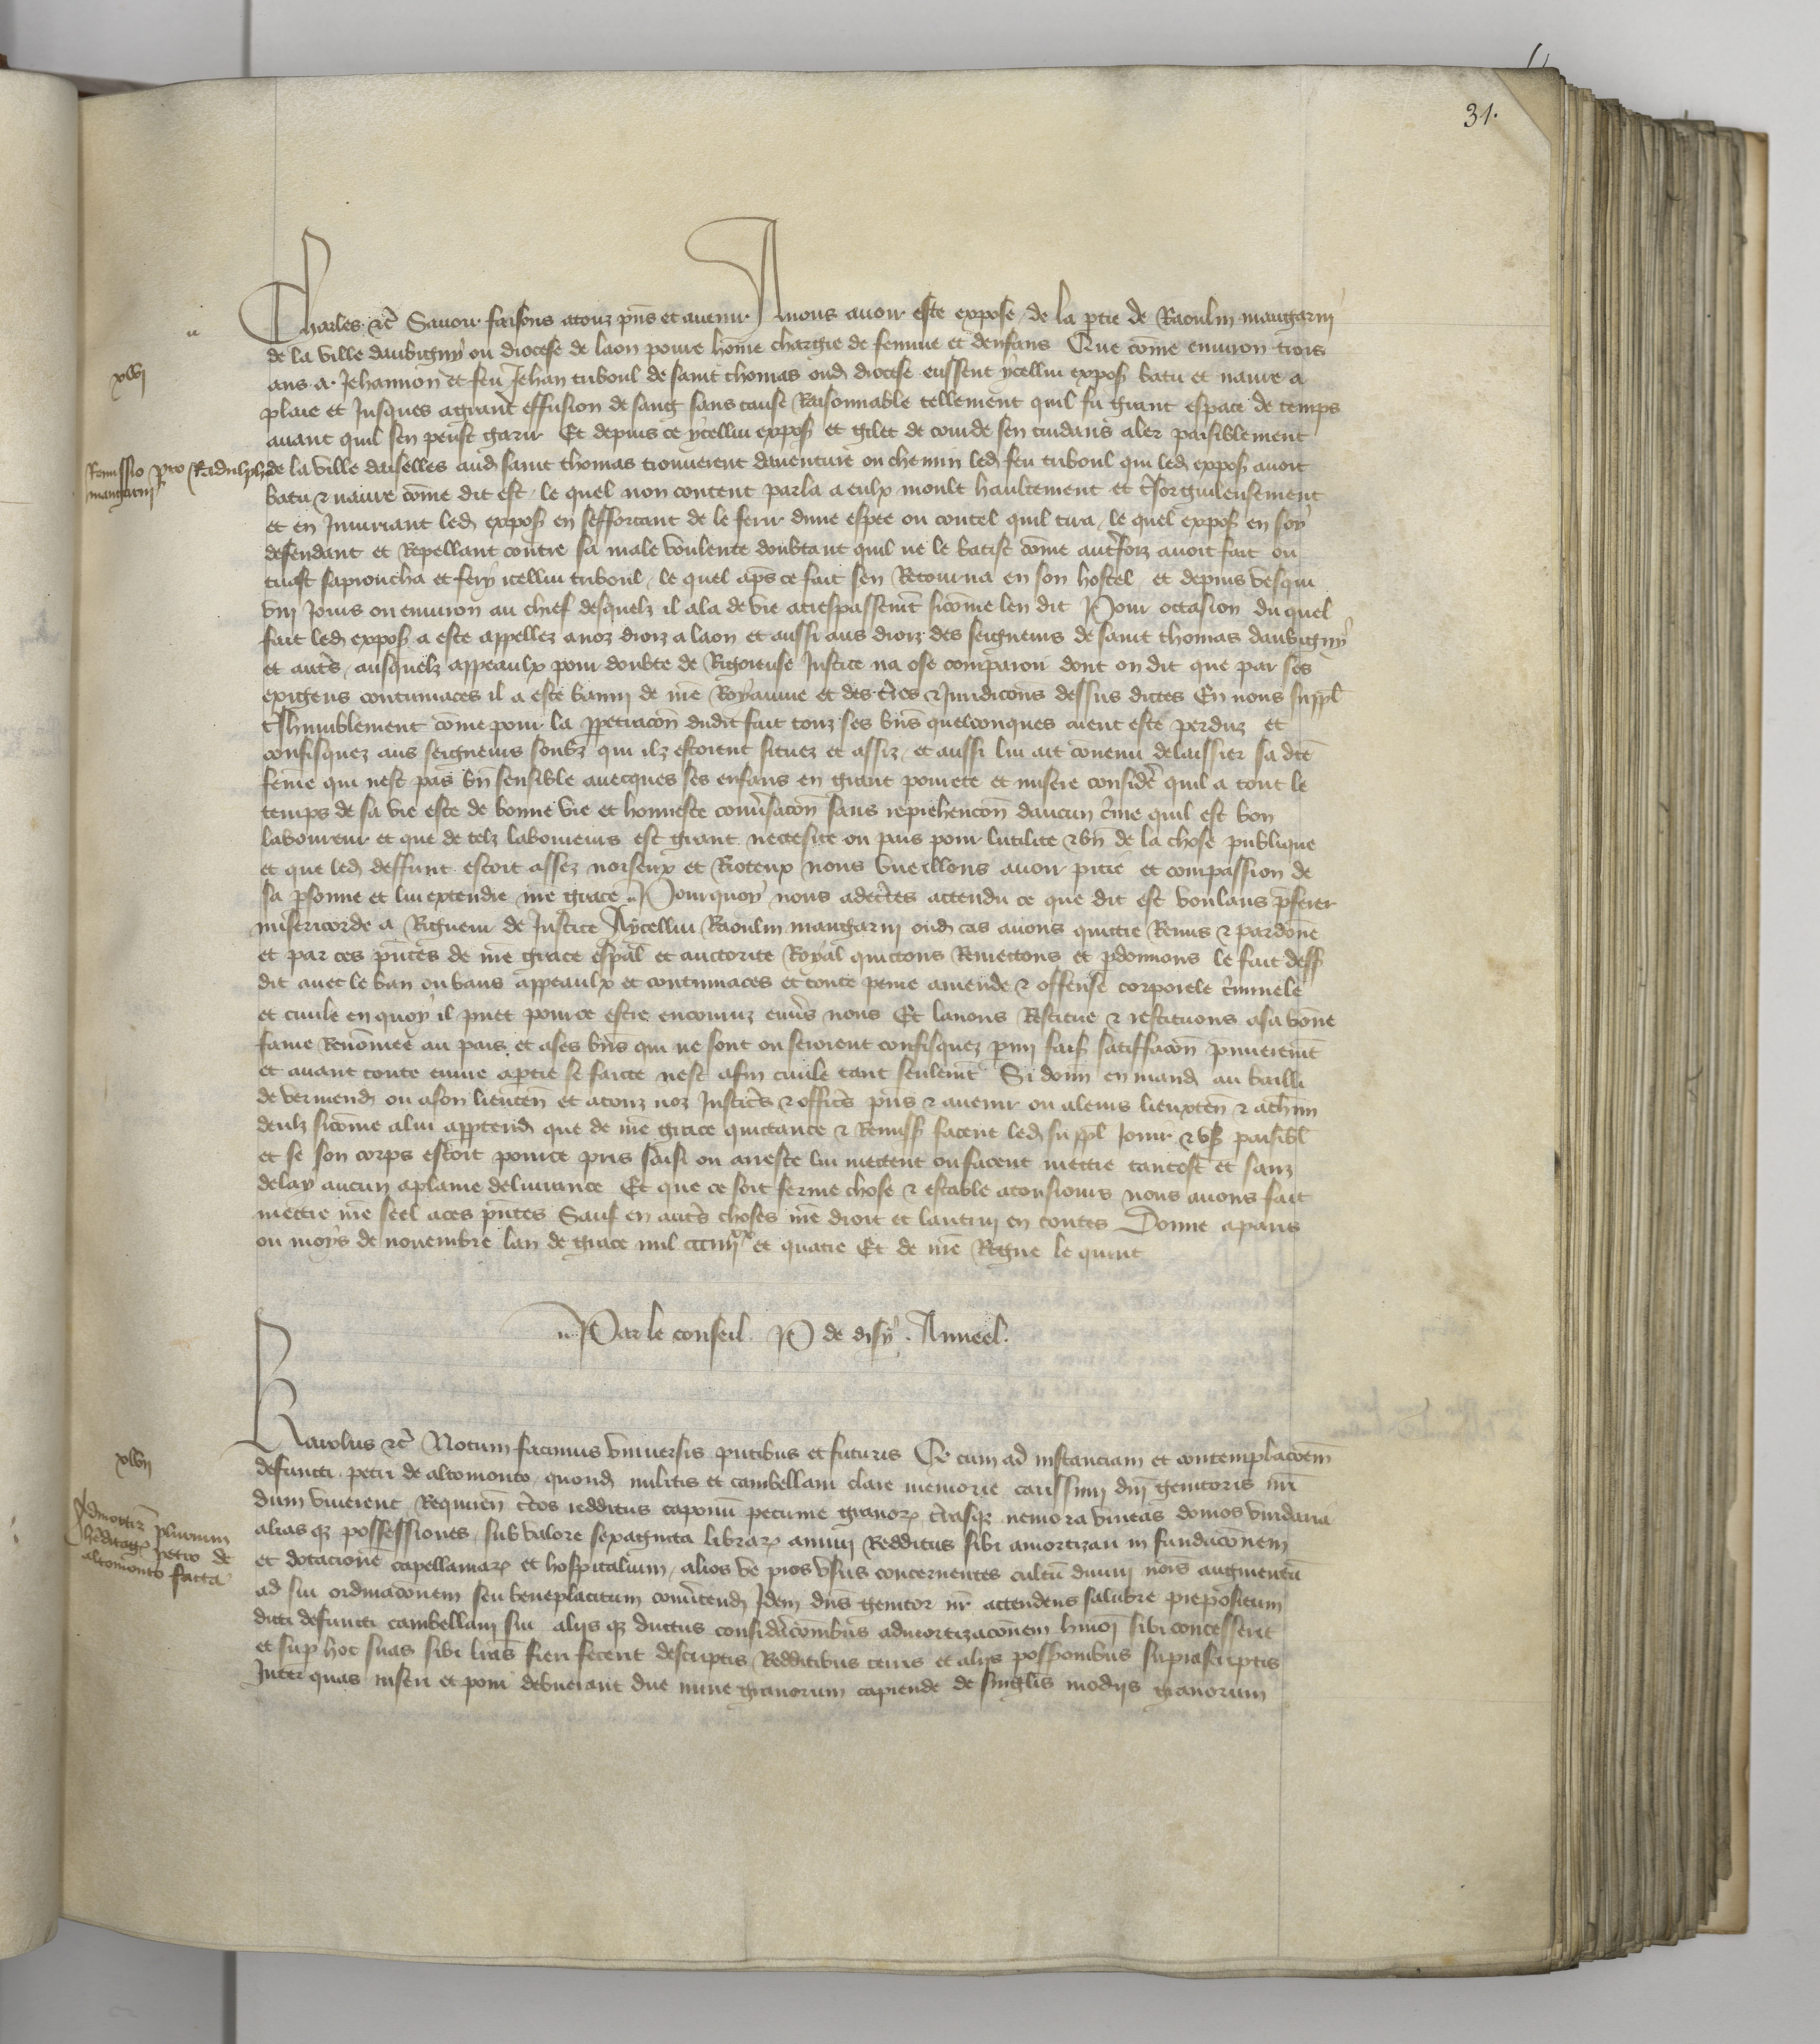 31.
Charles etc̃ Sauoir faisons atouz pñs et auenir Anous auoir este expose de la ptie de Raoulin maugarni
xlvi
de la ville daubigny ou diocese de laon poure hõme chargie de femme et denfans Que cõme enuiron trois
ans a Jehannon et feu Jehan triboul de saint thomas oud diocese eussent ycellui expos batu et naure a
plaie et Jusques agrant effusion de sang sans cause Raisonnable tellement quil fu grant espace de temps
auant quil sen peust garir Et depuis ce ycellui expos et gilet de coude sen cuidans aler paisiblement
Remissio pro Radulpho
maugarnj
de la ville daiselles aud saint thomas trouuerent dauenture ou chemin led feu triboul qui led expos auoit
batu & naure cõme dit est le quel non content parla a eulx moult haultement et tsorguileusement
et en Iniuriant led expos en sefforcant de le ferir dune espee ou coutel quil tira le quel expos en soy
defendant et Repellant contre sa male voulente doubtant quil ne le batist cõme autrefoiz auoit fait ou
tuast sapproucha et fery icellui triboul le quel aps ce fait sen Retourna en son hostel et depuis vesqui
viij Jours ou enuiron au chief desquelz il ala de vie atrespassemt sicõme len dit Pour occasion du quel
fait led expos a este appellez anoz droiz a laon et aussi aus droiz des seigneurs de saint thomas daubigny
et autrs ausquelz appeaulx pour doubte de Rigoreuse Justice na ose comparoir dont on dit que par ses
exigens contumaces il a este banni de nrẽ Royaume et des trres & Juridicõns dessus dictes En nous suppl
tshumblement cõme pour la ppetracõn dudit fait touz ses biñs quelconques aient este perduz et
confisquez aus seigneurs soubz qui ilz estoient situez et assiz et aussi lui ait cõuenu delaissier sa dte
femẽ qui nest pas bñ sensible auecques ses enfans en grant pourete et misere consider quil a tout le
temps de sa vie este de bonne vie et honneste conuersacõn sans reprehencõn daucun crime quil est bon
laboureur et que de telz laboureurs est grant neccesite ou pais pour lutilite & bñ de la chose publique
et que led deffunt estoit assez noiseux et Rioteux nous vueillons auoir pitie et compassion de
sa psonne et lui extendre nrẽ grace Pourquoy nous adecertes attendu ce que dit est voulans pferer
misericorde a Rigueur de Justice Aycellui Raoulin maugarni oud cas auons quittie Remis & pardonẽ
et par ces pñtes de nrẽ grace espãl et auctorite Royal quittons Remettons et pdonnons le fait dess
dit auec le ban ou bans appeaulx et contumaces et toute peine amende & offense corporele criminele
et ciuile en quoy il puet pour ce estre encouruz enuers nous Et lauons Restitue & restituons asa bonẽ
fame Renõmee au pais et ases biñs qui ne sont ou seroient confisquez pmi fais satiffacõn pmieremt
et auant toute euure aptie se faicte nest afin ciuile tant seulemt Si donñ en mand au bailli
de vermend ou ason lieuteñ et atouz noz Justicrs & officrs pñs & auenir ou aleurs lieuxteñ & achũn
deulz sicõme alui apptend que de nrẽ grace quictance & Remiss facent led suppl Jouir & vs paisibl
et se son corps estoit pour ce pris saisi ou arreste lui mettent ou facent mettre tantost et sanz
delay aucun aplaine deliurance Et que ce soit ferme chose & estable atousiours nous auons fait
mettre nrẽ seel aces pñtes Sauf en autrs choses nrẽ droit et lautruj en toutes Donne aparis
ou moys de nouembre lan de grace mil ccciiijxx et quatre Et de nrẽ Regne le quint
Par le conseil P de disy. Anneel.
xlvij
Karolus etc̃ Notum facimus vniuersis pñtibus et futuris Qr cum ad instanciam et contemplacõem
defuncti petri de altomonto quond militis et cambellani clare memorie carissimi dñi genitoris nrĩ
Admortiz plurium
heditag petro de
altomonto facta
dum viuerent Requirẽn crtos redditus caponũ pecunie granor trrasqz nemora vineas domos viridaria
alias qz possessiones sub valore sexaginta librar annui Redditus sibi amortizari in fundacõnem
et dotacionẽ capellaniar et hospitalium alios ve pios vsus concernentes cultũ diuini nõis augmentũ
ad sui ordinacõnem seu beneplacitum conurtend Idem dñs genitor nr attendens salubre prepositum
dicti defuncti cambellani sui alijs qz ductus consideracõnibus admortizacõnem hmõi sibi concesserit
et sup hoc suas sibi lrãs fieri fecerit descriptis Redditibus terris et alijs possõnibus suprascriptis
Inter quas inseri et poni debuerant due mine granorum capiende de singlis modijs granorum